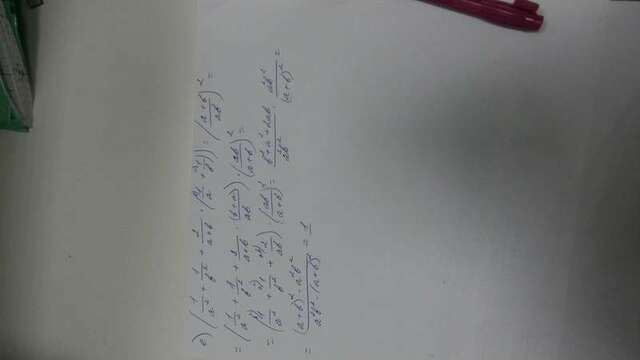 е) (1/a² + 1/b² + 2/(a+b) · (1/a + 1/b)) : ((a+b)/ab)² =
= (1/a² + 1/b² + 2/(a+b) · (b+a)/ab) · (ab/(a+b))² =
= (1/a² + 1/b² + 2/ab) · (ab/(a+b))² = (b²+a²+2ab)/a²b² · a²b²/(a+b)² =
= ((a+b)² · a²b²)/(a²b² · (a+b)²) = 1